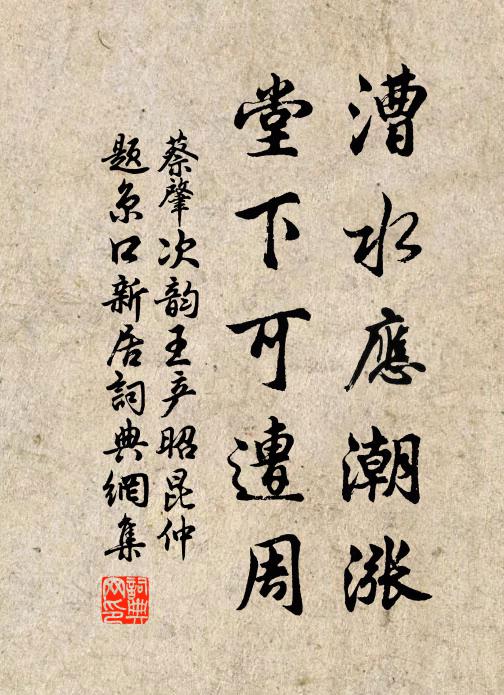 漕水應潮漲
堂下可遭周
蔡肇次韵王彦昭昆仲
题京口新居詞典網集
詞典网印